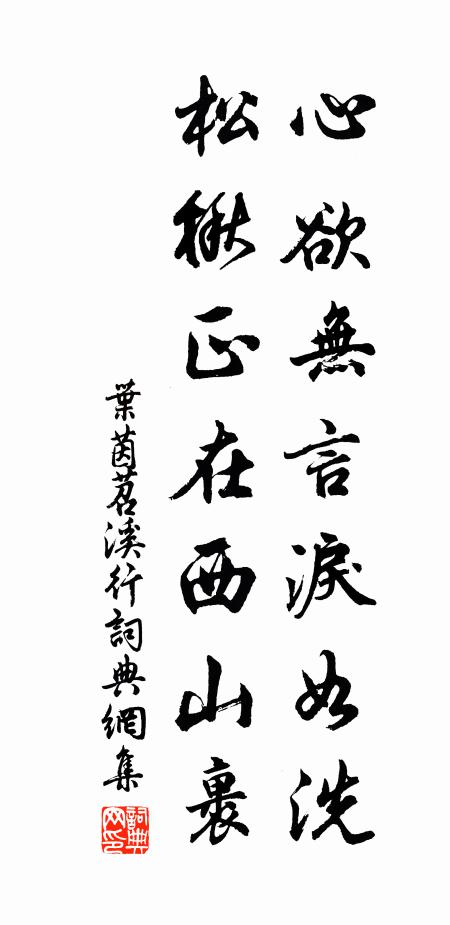 心欲無言淚如洗
松楸正在西山裏
葉茵苕溪行詞典網集
詞典網印